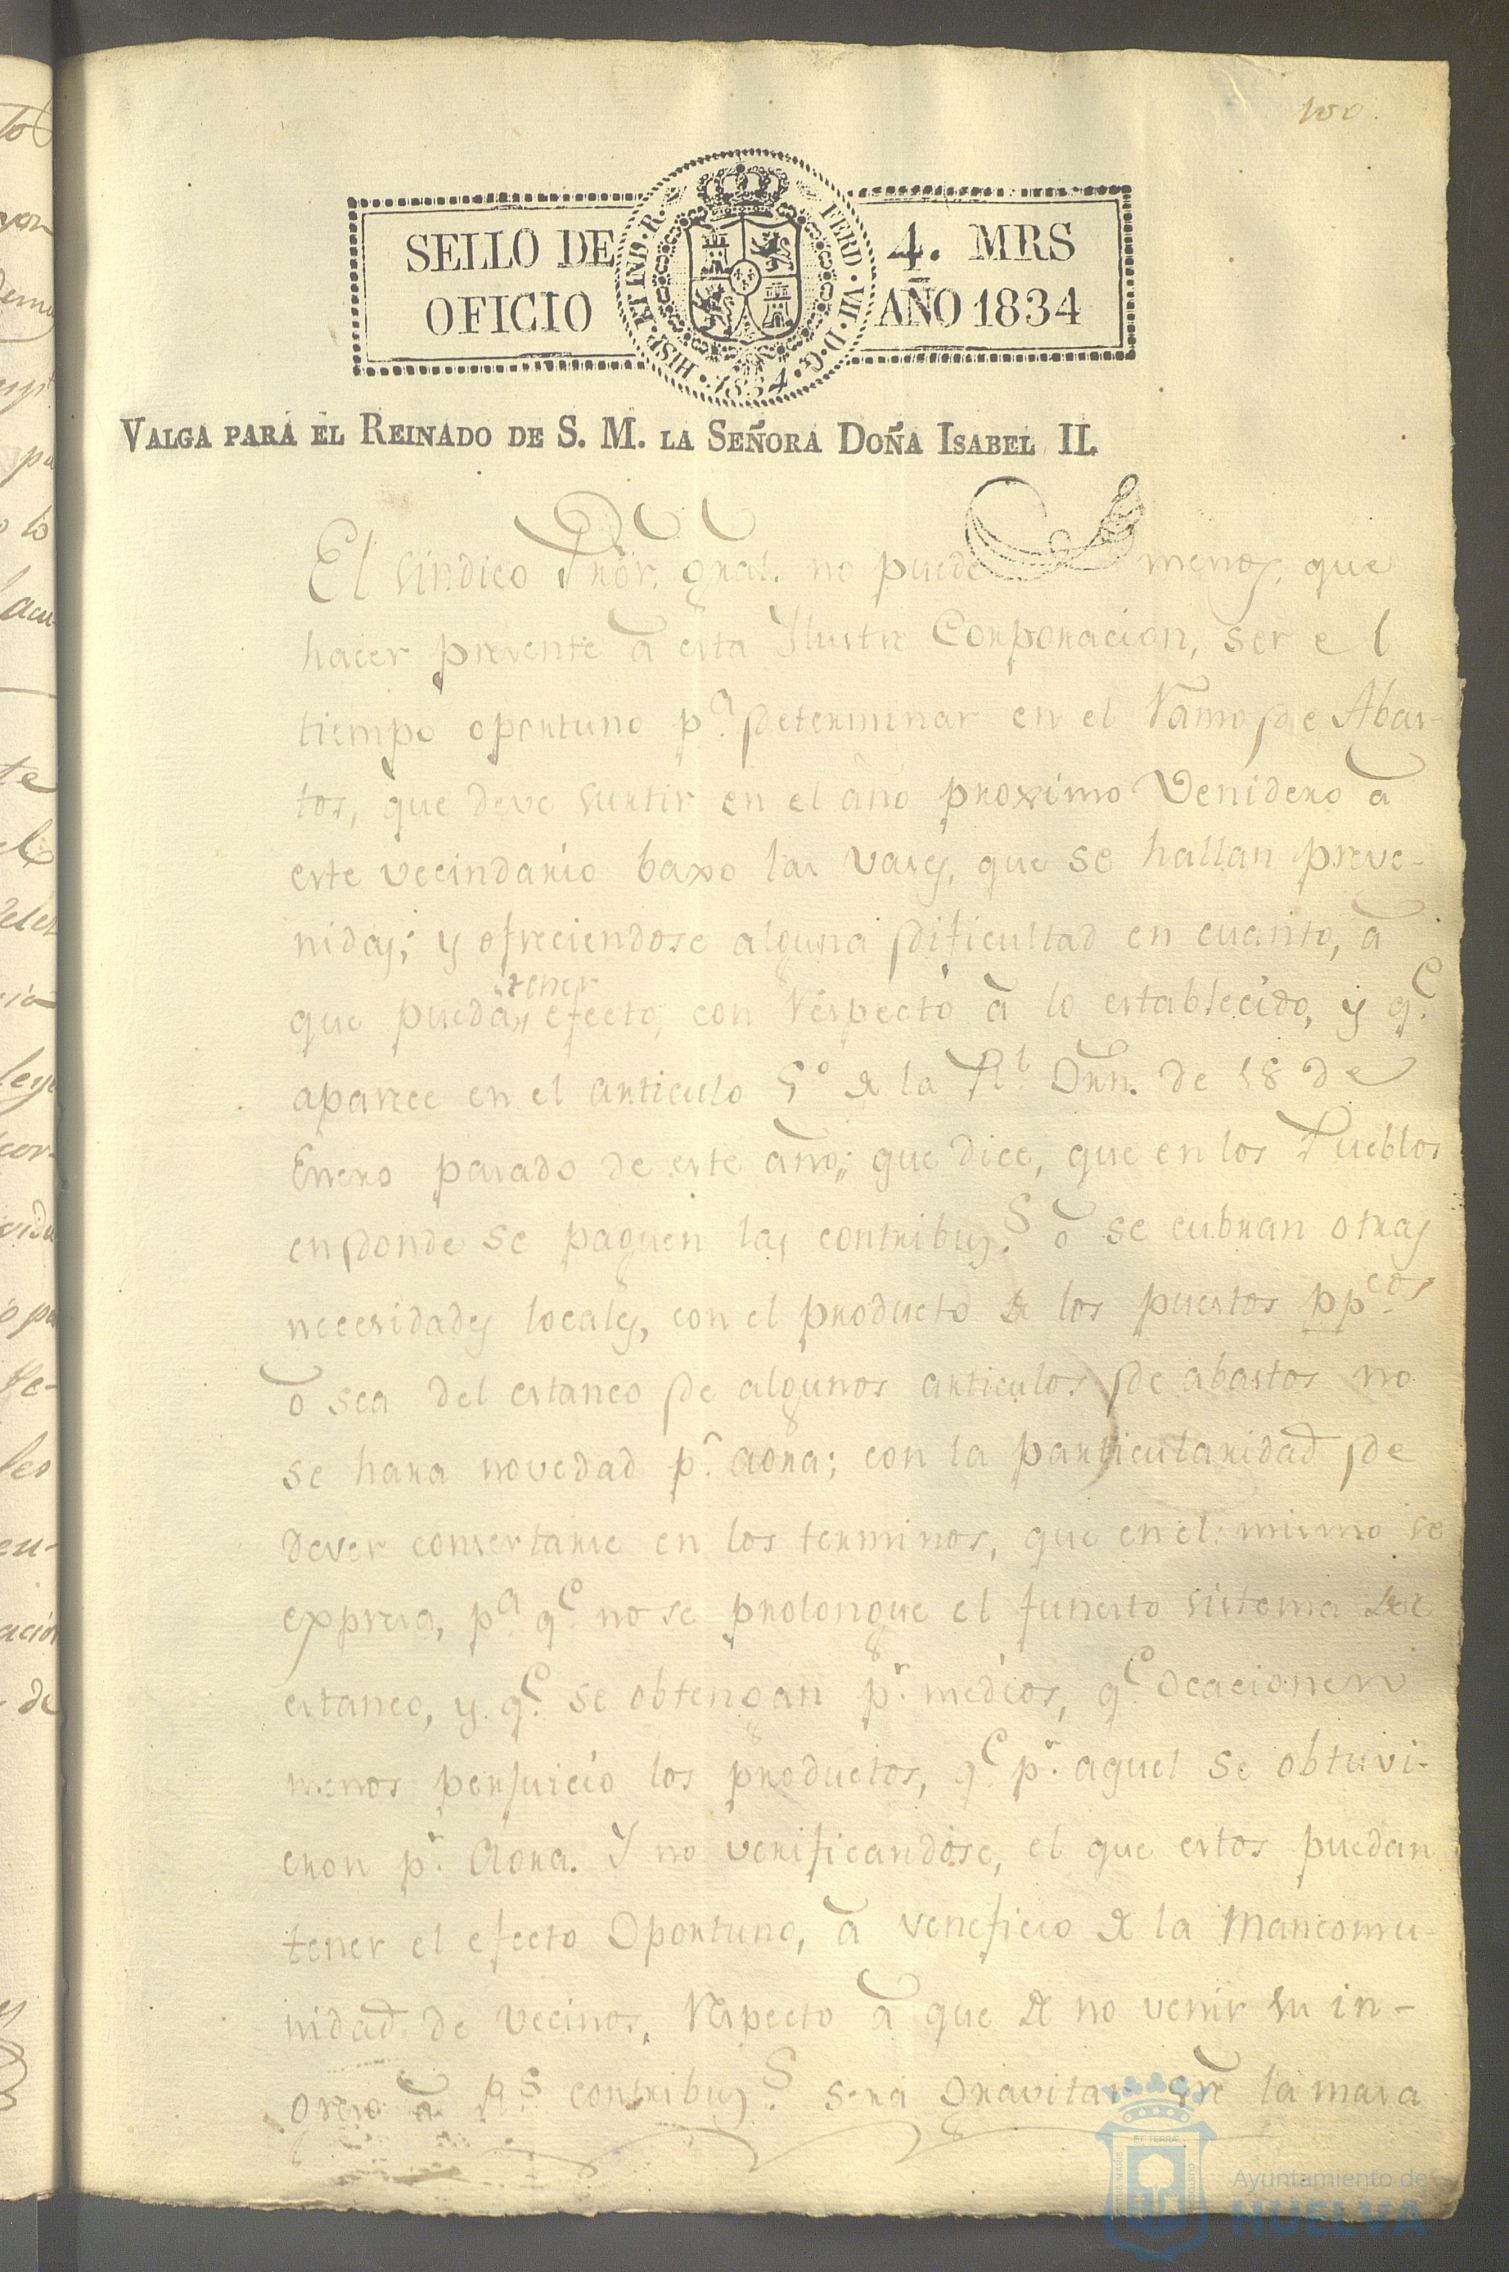 100.
SELLO DE 4. MRS
OFICIO AÑO 1834
HISP. ET IND. R. FERD. VII. D. G. 1834
VALGA PARA EL REINADO DE S. M. LA SEÑORA DOÑA ISABEL II.
El Sindico Pror. gral. no puede menos, que
hacer presente à esta Ylustre Corporacion, ser el
tiempo oportuno pa. determinar en el Ramo de Abas-
tos, que deve surtir en el año proximo venidero à
este vecindario baxo las vases, que se hallan preve-
nidas; y ofreciendose alguna dificultad en cuanto, à
tener
que puedan efecto, con respecto à lo establecido, y qe.
aparece en el articulo 5º de la Rl. Orn. de 18 de
Enero pasado de este año; que dice, que en los Pueblos
en donde se paguen las contribus.s ò se cubran otras
necesidades locales, con el producto de los puestos ppcos.
ò sea del estanco de algunos articulos de abastos no
se hara novedad pr. aora; con la particularidad de
dever consertarse en los terminos, que en el mismo se
expresa, pa. qe. no se prolongue el funesto sistema de
estanco, y qe. se obtengan pr. medios, qe. ocacionen
menos perjuicio los productos, qe. pr. aquel se obtuvi-
eron pr. Aora. Y no verificandose, el que estos puedan
tener el efecto Oportuno, à veneficio de la Mancomu-
nidad de vecinos, respecto à que de no venir su in-
greso à contribus.s será gravitar sre la masa
Ayuntamiento de
HUELVA